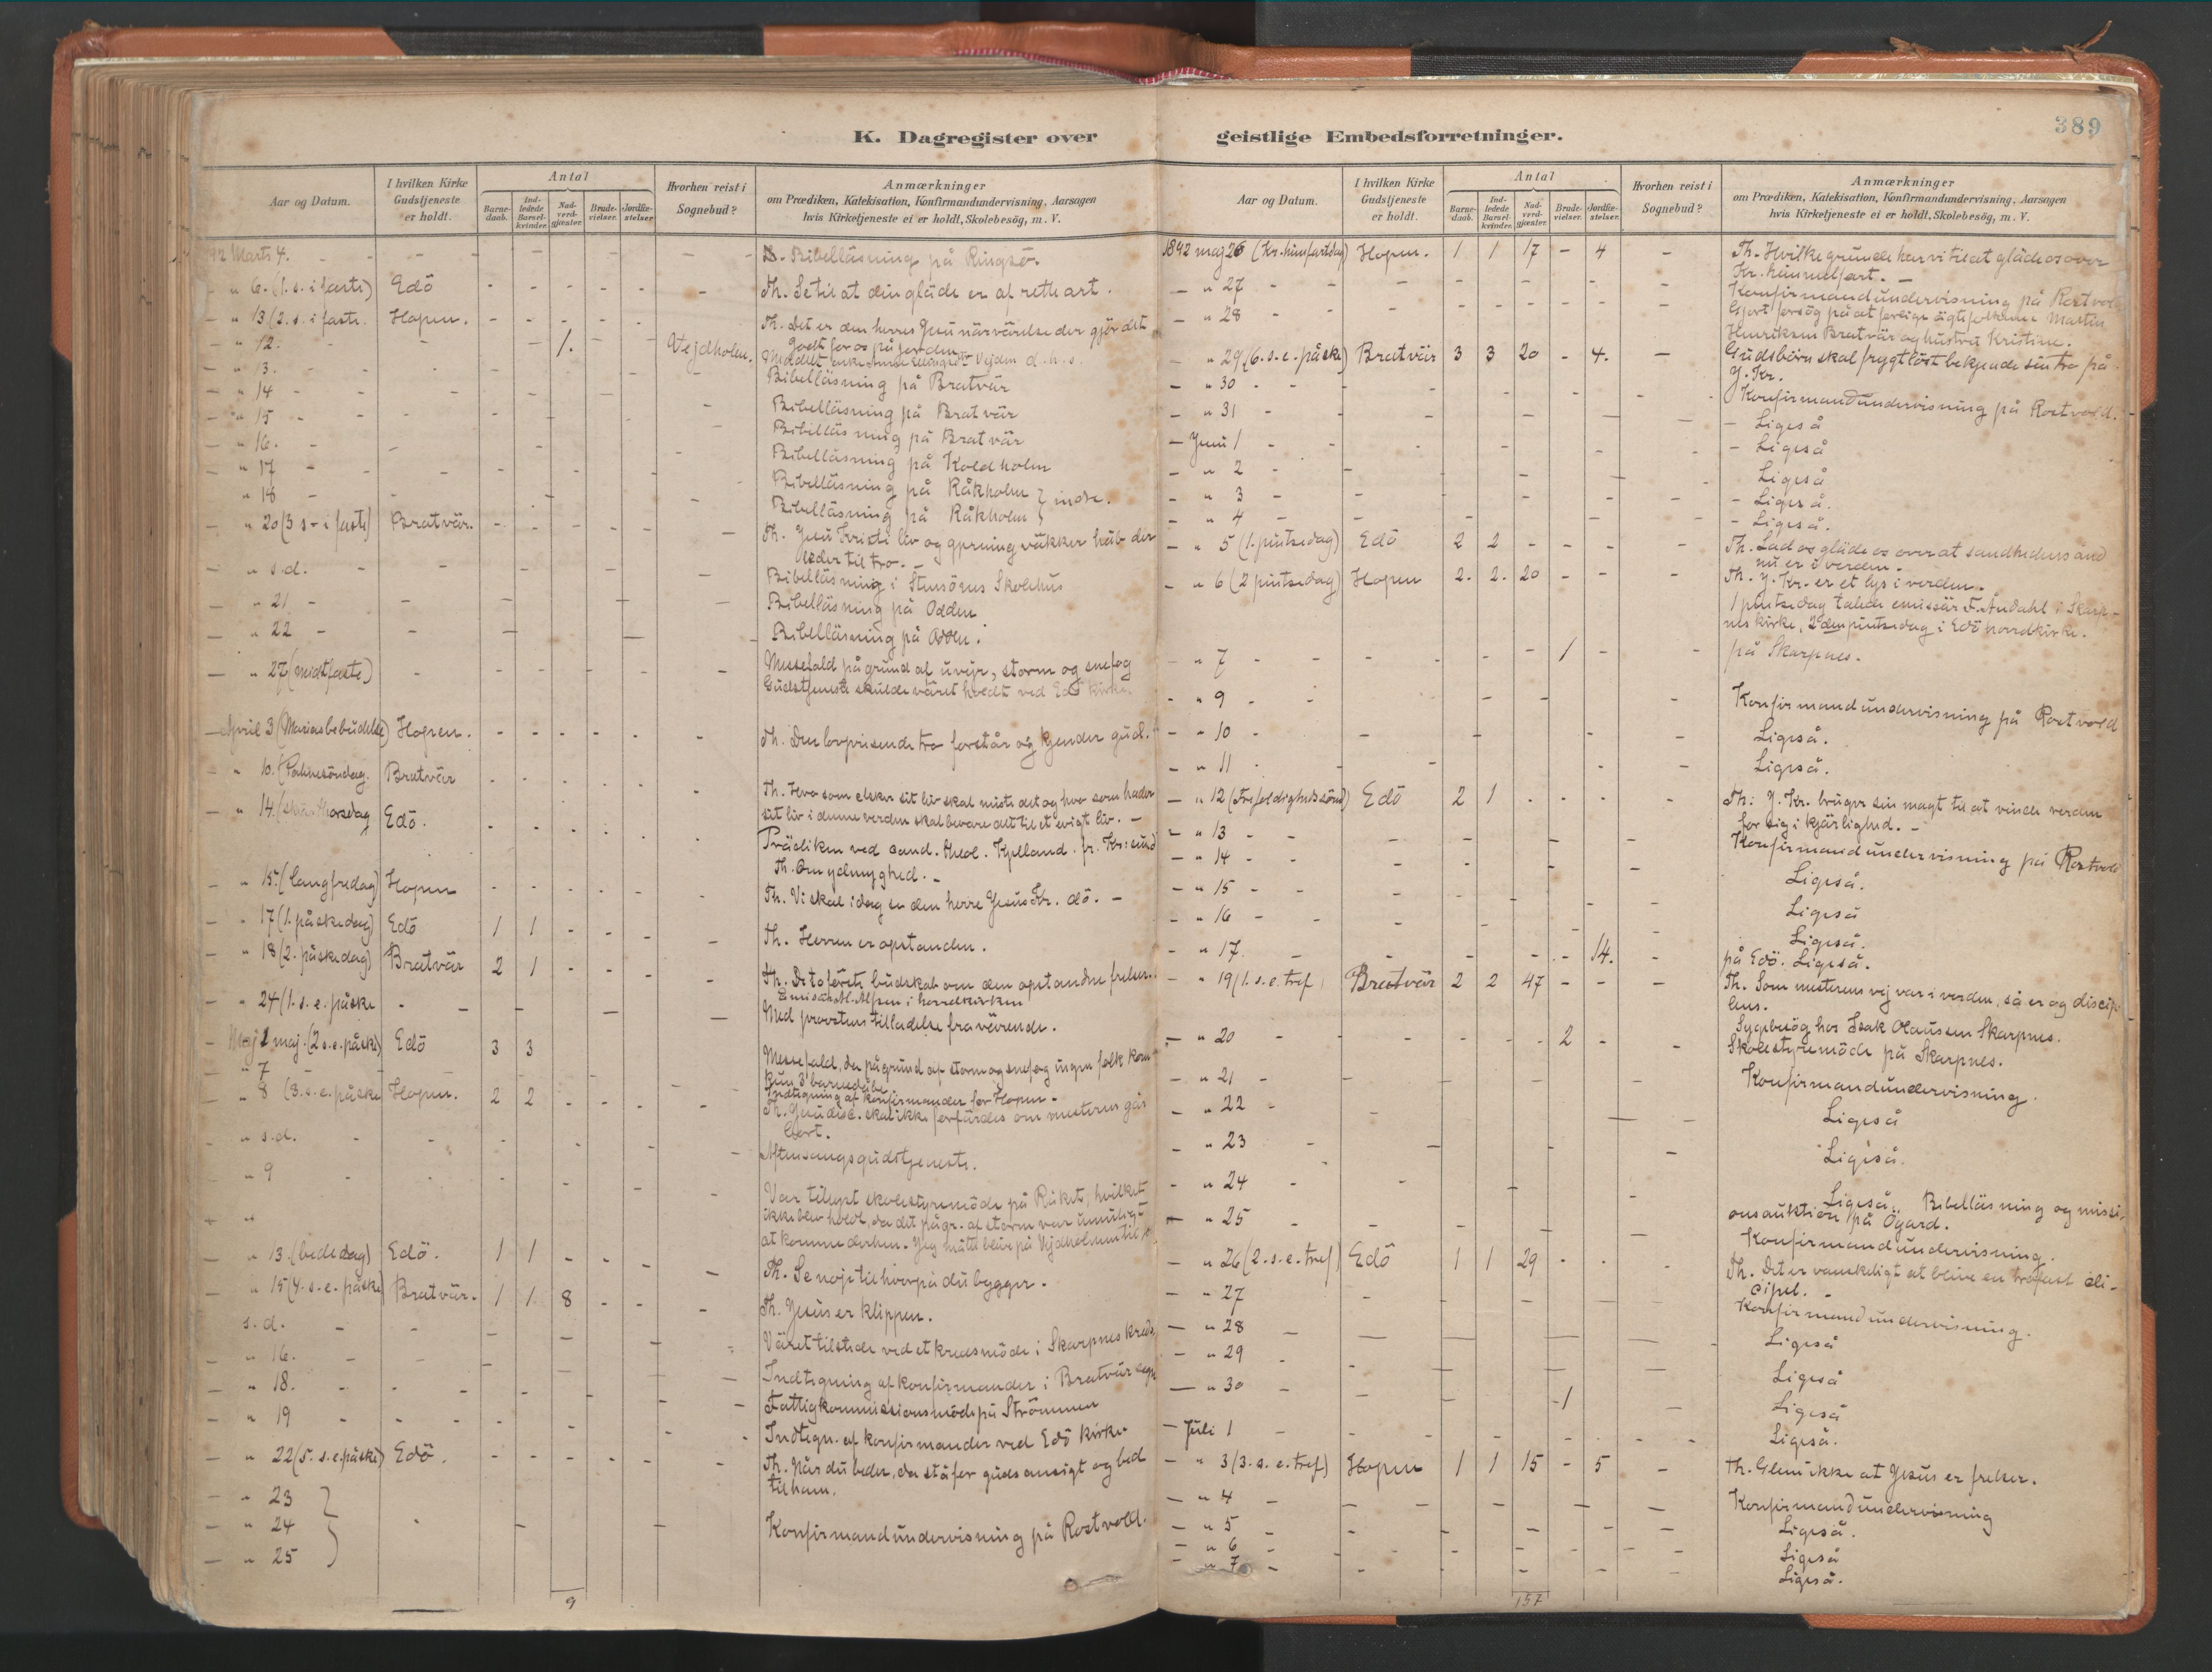 389
K. Dagregister over
Aar og Datum.
I hvilken Kirke Gudstjeneste er holdt.
Antal
Barnedaab.
Indledede Barselkvinder.
Nadverdgjæster.
Brudevielser.
Jordfæstelser.
Hvorhen reist i Sognebud?
Anmærkninger
om Prædiken, Katekisation, Konfirmandundervisning, Aarsagen
hvis Kirketjeneste ei er holdt, Skolebesøg, m. V.
92 Marts 4. - - - - - - - - Bibelläsning på Ringsö.
" 6. (1. s. i faste) Edö - - - - - - Th. Se til at din gläde er af rette art.
" 13 (2. s. i faste. Hopen. - - - - - Th. Det er den herres Jesu närvärelse der gjör det
godt for os på jorden
" 12. - - 1. - - Vejdholm.
" 13. - Bibelläsning på Bratvär
" 14 - Bibelläsning på Bratvär
" 15 - Bibelläsning på Bratvär
" 16. - Bibelläsning på Koldholm
" 17 - Bibelläsning på Råkholm } indre.
" 18 - Bibelläsning på Råkholm
" 20 (3 s. i faste) Bratvär. - - - - - Th. Jesu Kristi liv og gjerning väkker håb der
leder til tro. -
" s.d. - Bibelläsning i Stensönes Skolehus
" 21 - Bibelläsning på Odden
" 22 - Bibelläsning på Odden.
" 27 (midtfaste) - Messefald på grund af uvejr, storm og snefog
Gudstjeneste skulde väret holdt ved Edö kirke.
April 3 (Mariæ bebudelse) Hopen. - - - - - Th. Den lovprisende tro forstår og kjender gud.
" 10. (Palmesöndag. Bratvär - - - - - Th. Hvo som elsker sit liv skal miste det og hvo som hader
sit liv i denne verden skal bevare det til et evigt liv. -
" 14. (skjærthorsdag Edö. - - - - - Prädiken ved cand. theol. Kjelland fr. Kr:sund
Th. Om ydmyghed. -
" 15. (langfredag) Hopen - - - - - Th. Vi skal idag se den herre Jesus Kr. dö. -
" 17 (1. påskedag) Edö 1 1 - - - - Th. Herren er opstanden.
" 18 (2. påskedag) Bratvär 2 1 - - - - Th. De to förste budskab om den opstandne frelser.
" 24 (1. s. e. påske - Med provstens tilladelse fraværende.
Maj 1 maj. (2 s. e. påske) Edö 3 3 Messefald, da på grund af storm og snefog ingen folk kom
kun 3 barnedåbe
" 7 Indtegning af konfirmander for Hopen -
" 8 (3. s. e. påske Hopen. 2 2 - - - - Th. Jesu disc. skal ikke forfärdes om mesteren går
bort.
" s.d. - Aftensangsgudstjeneste.
" 9 Var tilsagt skolestyremöde på Råket, hvilket
ikke blev holdt, da det på gr. af storm var umuligt
at komme derhen. Jeg måtte blive på Vejdholmen til
" 13. (bededag) Edö. 1 1 - - - - Th. Se nøje til hvorpå du bygger.
" 15 (4. s. e. påske) Bratvär. 1 1 8 - - - Th. Jesus er klippen.
s. d. - Väret tilstede ved et kredsmöde i Skarpnes kreds
" 16. - Indtegning af konfirmander i Bratvär sogn
" 18. - Fattigkommissionsmöde på Strömmen
" 19 - Indtegn. af konfirmander ved Edö kirke.
" 22 (5. s. e. påske) Edö. - - - - - Th. Når du beder, da stå for guds ansigt og bed
til ham.
" 23 }
" 24 } Konfirmandundervisning på Rostvold.
" 25 }
9
geistlige Embedsforretninger.
Aar og Datum.
I hvilken Kirke Gudstjeneste er holdt.
Antal
Barnedaab.
Indledede Barselkvinder.
Nadverdgjæster.
Brudevielser.
Jordfæstelser.
Hvorhen reist i Sognebud?
Anmærkninger
om Prædiken, Katekisation, Konfirmandundervisning, Aarsagen
hvis Kirketjeneste ei er holdt, Skolebesøg, m. V.
1892 maj 26 (Kr. himfartsdag) Hopen. 1 1 17 - 4 - Th. Hvilke grunde har vi til at gläde os over
Kr. himmelfart. -
" 27 - Konfirmandundervisning på Rostvold
" 28 - Gjort forsög på at forlige ägtefolkene Martin
Henriksen Bratvär og hustru Kristine.
" 29 (6. s. e. påske) Bratvär 3 3 20 - 4. - Gudsbörn skal frygtlöst bekjende sin tro på
J. Kr.
" 30 - Konfirmandundervisning på Rostvold.
" 31 - Ligeså
Juni 1 - Ligeså
" 2 - Ligeså
" 3 - Ligeså.
" 4 - Ligeså.
" 5 (1. pintsedag) Edö 2 2 - - - - Th. Lad os gläde os over at sandhedens ånd
nu er i verden. -
" 6 (2 pintsedag) Hopen 2. 2. 20 - - - Th. J. Kr. er et lys i verden.
1 pintsedag talede emissär F. Andahl i Skarp-
nes kirke, 2den pintsedag i Edö hovedkirke.
" 7 - 1 - på Skarpnes.
" 9 - Konfirmandundervisning på Rostvold
" 10 - Ligeså.
" 11 - Ligeså.
" 12 (Trefoldighedssönd) Edö 2 1 - - - - Th: J. Kr. bruger sin magt til at vinde verden
for sig i kjärlighed. -
" 13 - Konfirmandundervisning på Rostvold
" 14 - Ligeså.
" 15 - Ligeså
" 16 - Ligeså.
" 17. - 14. - på Edö. Ligeså.
" 19 (1. s. e. tref. Bratvär 2 2 47 - - - Th. Som mesterens vej var i verden, så er og discip-
lens.
Sygebesög hos Isak Olaussen Skarpnes.
" 20 - 2 - Skolestyremöde på Skarpnes.
" 21 - Konfirmandundervisning.
" 22 - Ligeså
" 23 - Ligeså.
" 24 - Ligeså. Bibelläsning og missi-
onsauktion på Ögard.
" 25 - Konfirmandundervisning.
" 26 (2. s. e. tref) Edö 1 1 29 - - - Th. Det er vanskeligt at blive en trofast di-
cipel. -
" 27 - Konfirmandundervisning.
" 28 - Ligeså
" 29 - Ligeså
" 30 - 1 - Ligeså
Juli 1 - Ligeså.
" 3 (3. s. e. tref) Hopen 1 1 15 - 5 - Th. Glem ikke at Jesus er frelser.
" 4 - Konfirmandundervisning
" 5 - Ligeså.
" 6 - Ligeså
" 7 - Ligeså.
157